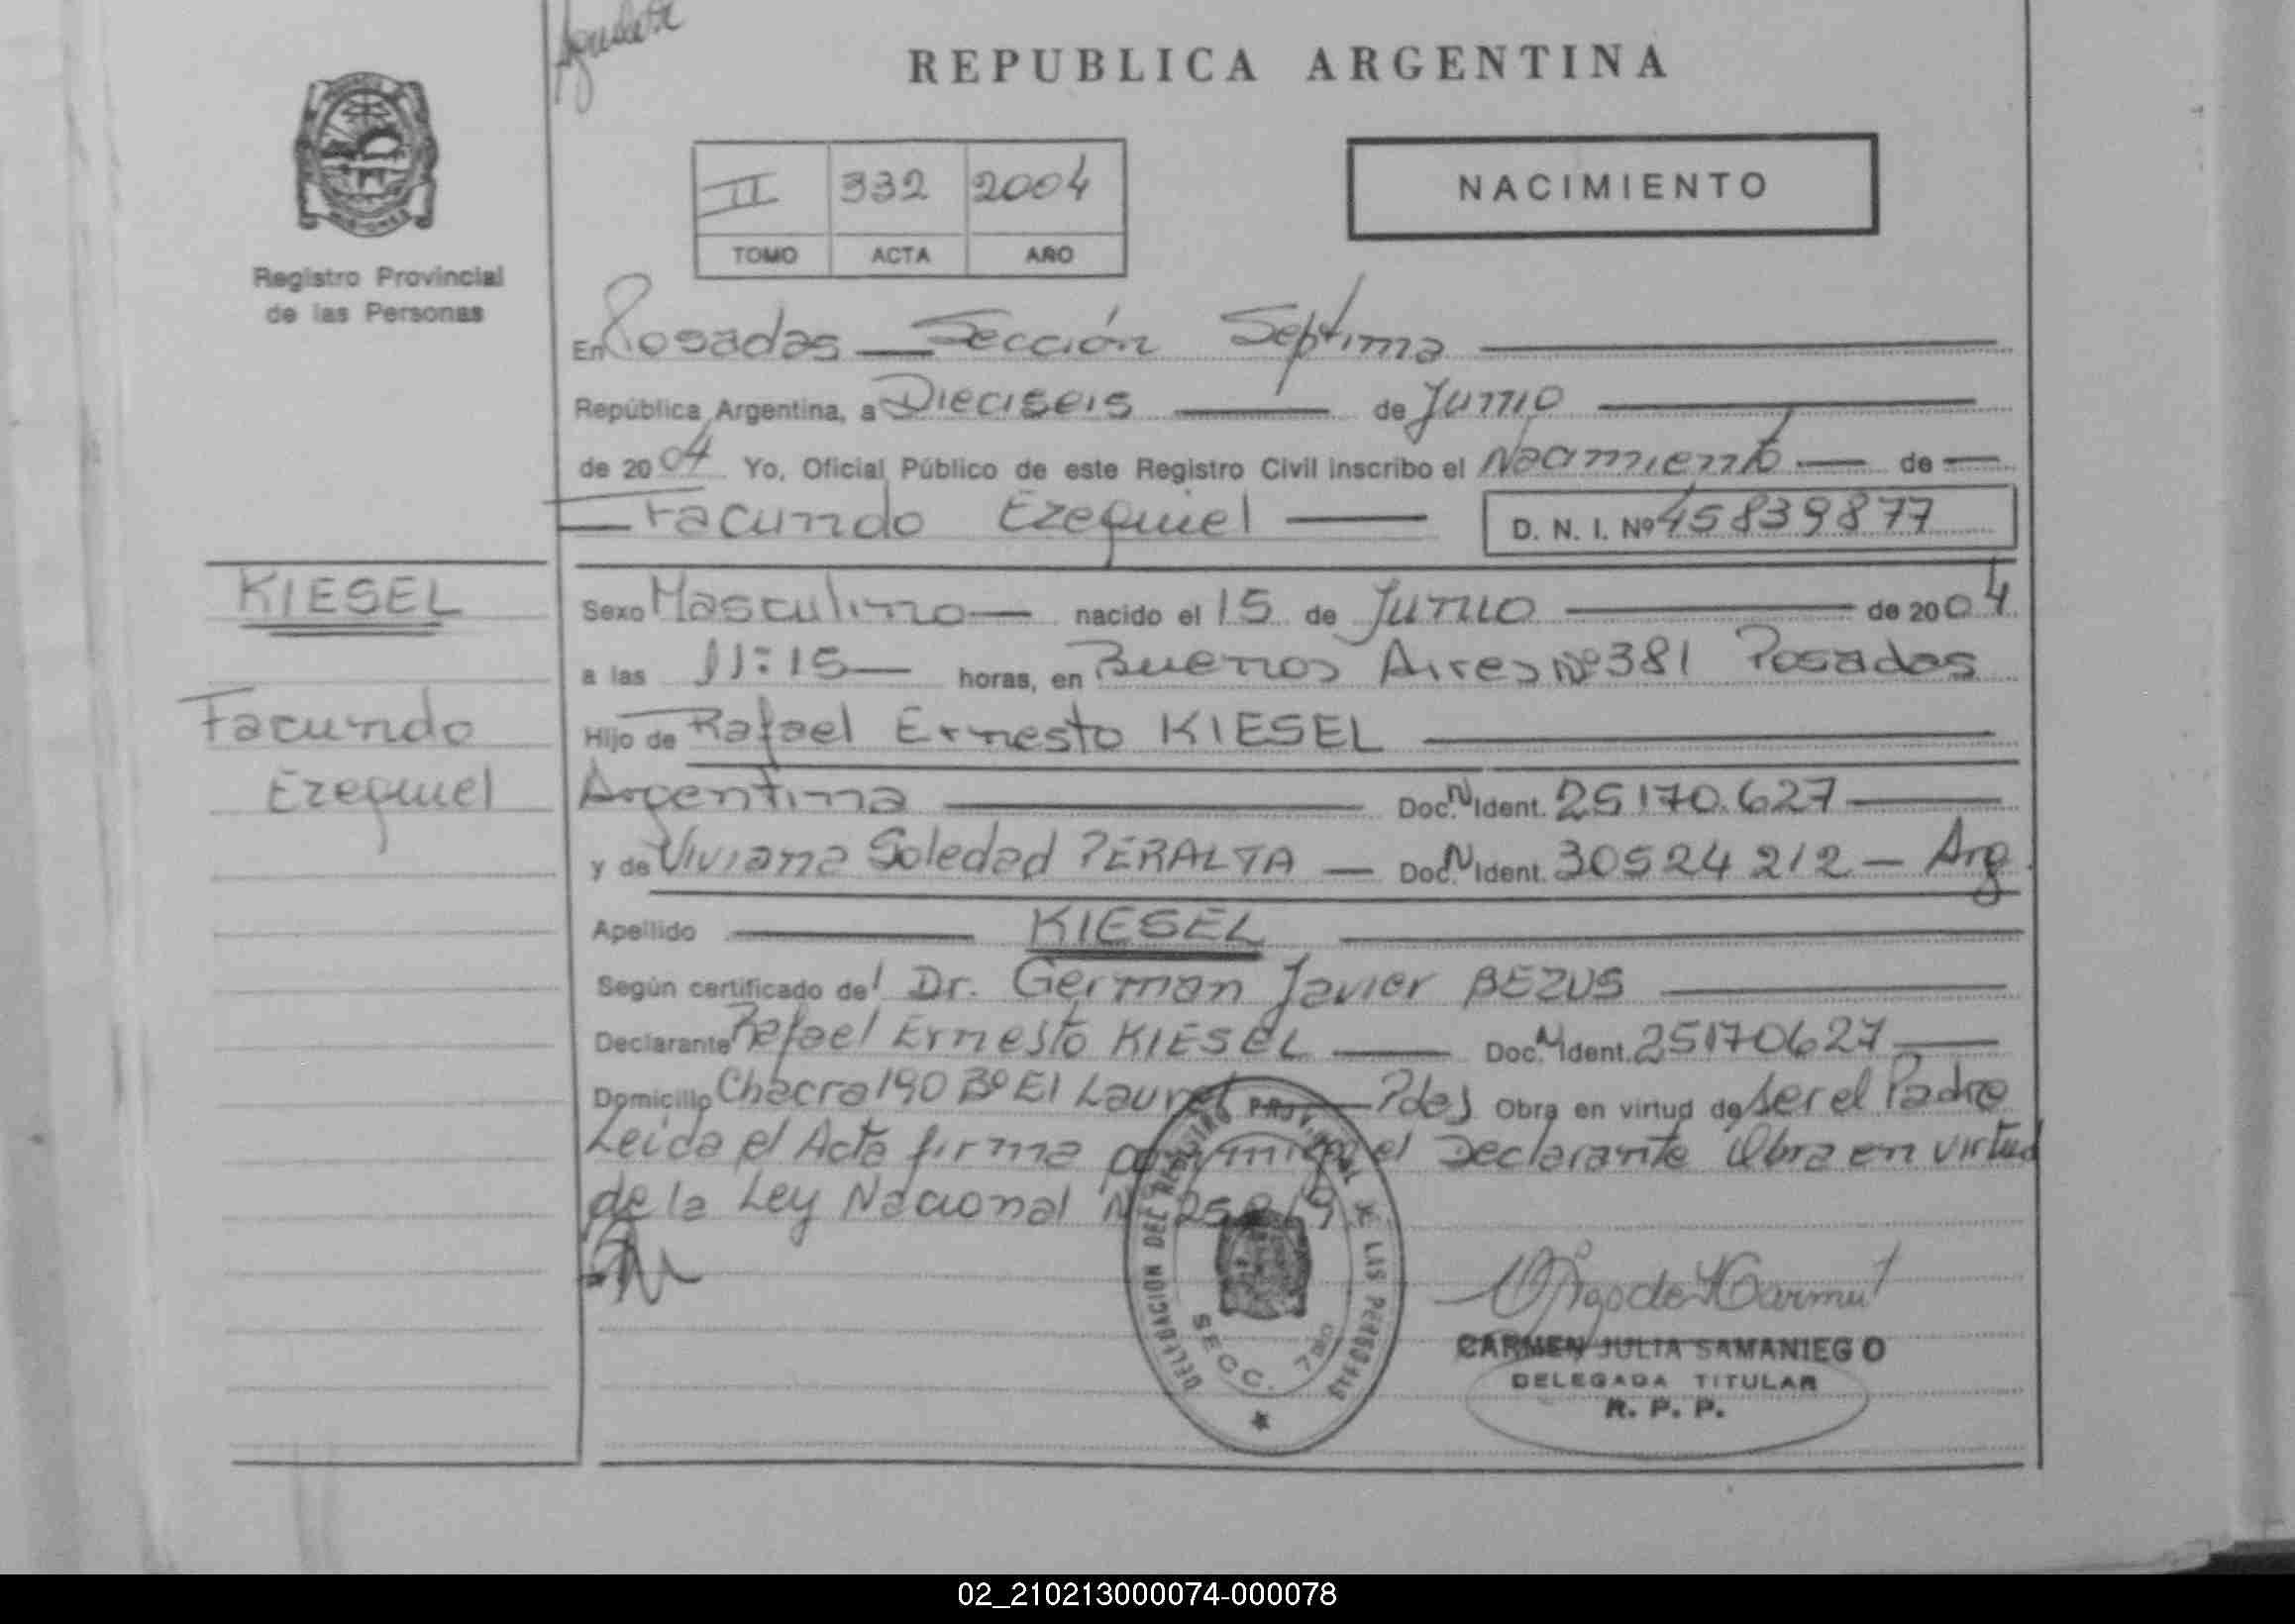 REPUBLICA ARGENTINA
II 332 2004
TOMO ACTA AÑO
NACIMIENTO
Registro Provincial
de las Personas
En Posadas — Sección Septima
República Argentina, a Dieciseis de Junio
de 2004 Yo, Oficial Público de este Registro Civil inscribo el Nacimiento — de —
Facundo Ezequiel — D. N. I. Nº 45839877
KIESEL
Facundo
Ezequiel
Sexo Masculino — nacido el 15 de Junio — de 2004
a las 11:15 — horas, en Buenos Aires Nº 381 Posadas
Hijo de Rafael Ernesto KIESEL
Argentina — Doc. N Ident. 25170.627
y de Viviana Soledad PERALTA — Doc. N Ident. 30524212 — Arg.
Apellido — KIESEL
Según certificado del Dr. German Javier BEZUS
Declarante Rafael Ernesto KIESEL — Doc. N Ident. 25170627
Domicilio Chacra 190 Bº El Laurel — Pdas Obra en virtud de ser el Padre
Leida el Acta firma por migo el Declarante Obra en virtud
de la Ley Nacional Nº
DELEGACION DEL REGISTRO PROVINCIAL DE LAS PERSONAS
SECC. 7ma
CARMEN JULIA SAMANIEGO
DELEGADA TITULAR
R. P. P.
02_210213000074-000078